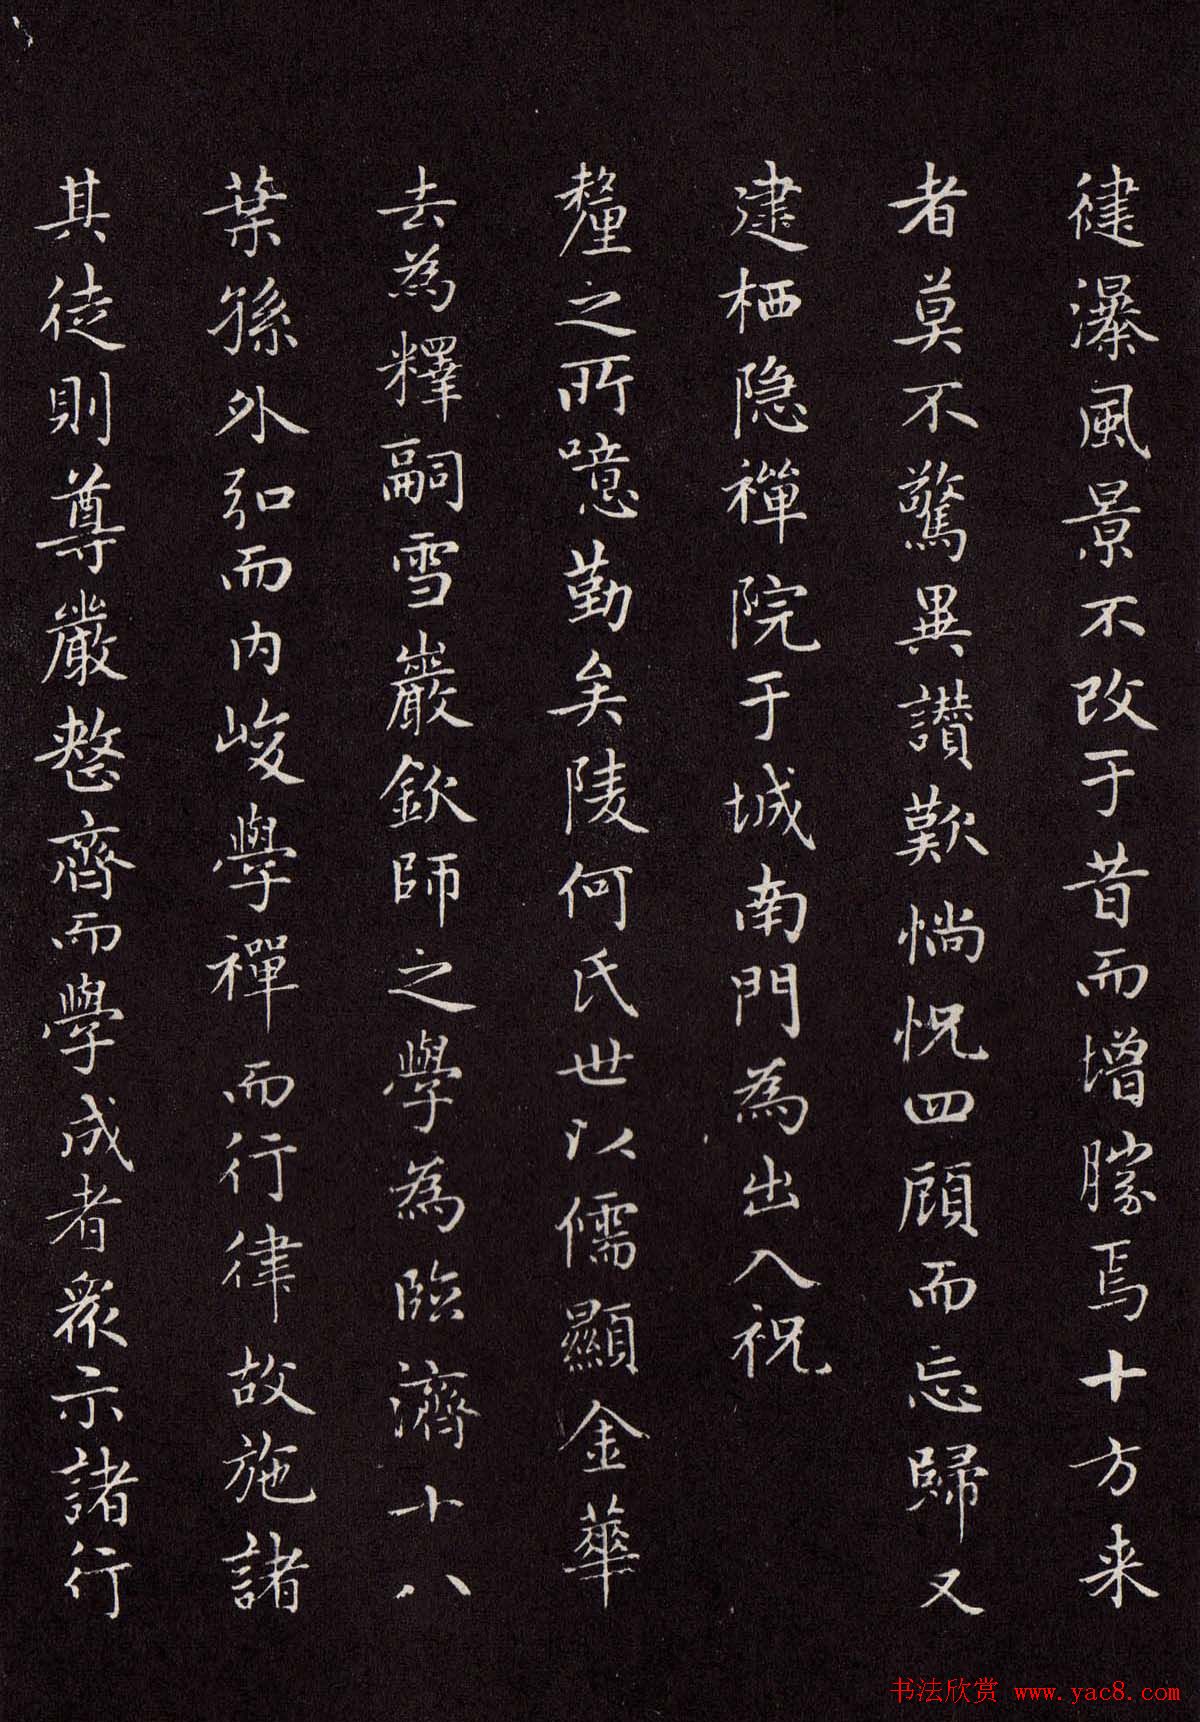 健瀑風景不改于昔而增勝焉十方来
者莫不驚異讃歎惝怳四顧而忘歸又
建栖隐禅院于城南門為出入祝
釐之所噫勤矣陵何氏世以儒顯金華
去為釋嗣雪巖欽師之學為臨濟十八
葉孫外弘而内峻學禪而行律故施諸
其徒則尊嚴整齊而學成者衆示諸行
书法欣赏 www.yac8.com